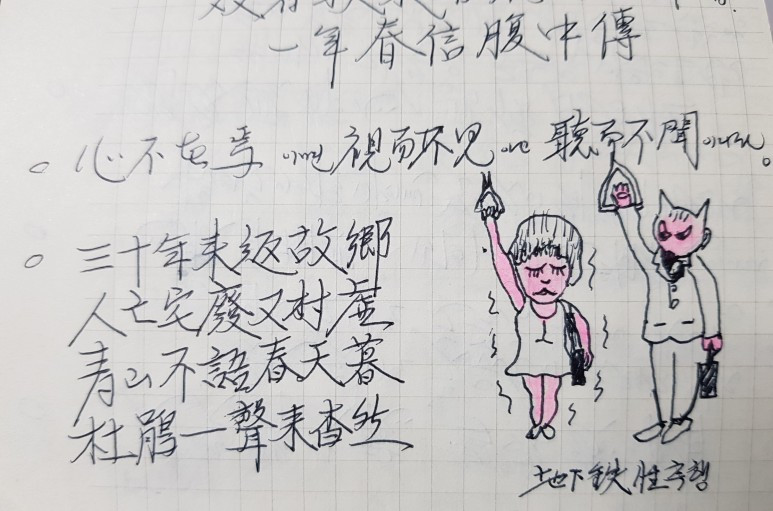 一年春信腹中傳
心不在焉 視而不見 聽而不聞
三十年来返故鄉
人亡宅廢又村虛
青山不語春天暮
杜鵑一聲来杳然
地下鉄 性추행